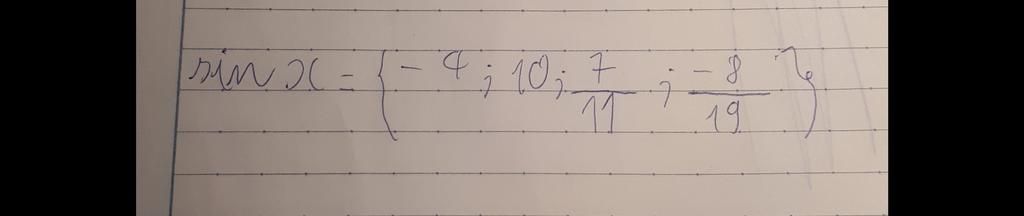 sin x = { - 4 ; 10 ; 7/11 ; -8/19 }